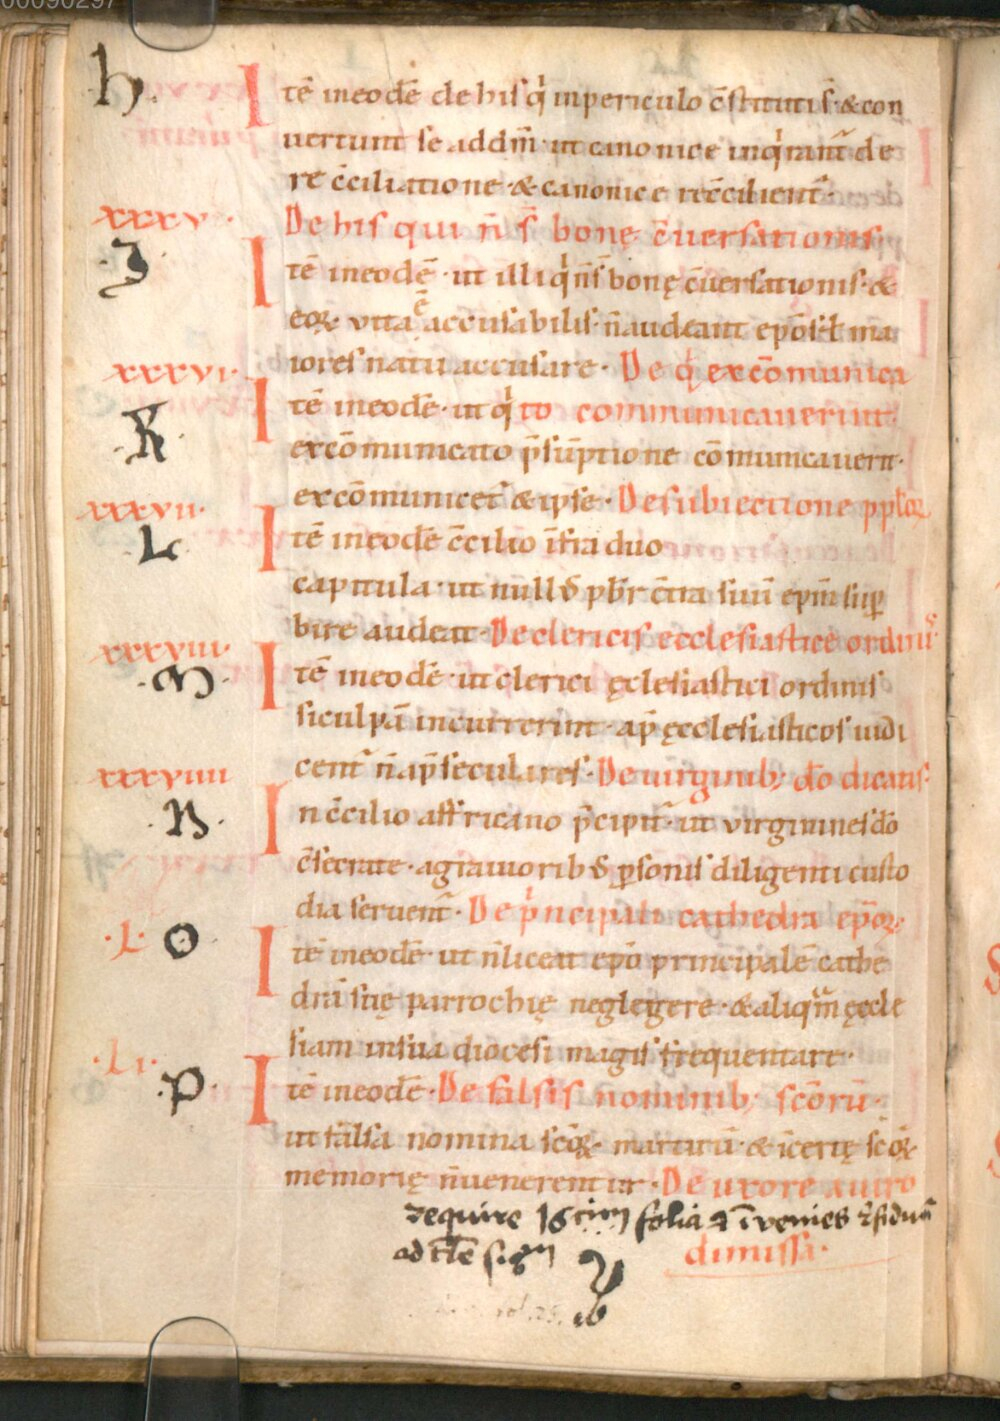 00090297
h.
Itē ineodē de his q̍ inpericulo c̄stituti s̄ · & con
uertunt se addm̄ · ut canonice inq̍rant̄ de
re c̄ciliatione · & canonice rec̄cilient̄ ·
xxxv · De his qui n̄ s̄ bonę c̄uersationis
·I· Itē ineodē · ut illi q̍ n̄ s̄ bonę c̄uersationis · &
eoꝝ uita ē accusabilis · n̄ audeant ep̄os ł ma
iores natu accusare · De q̍ excōmunica
xxxvi · Itē ineodē · ut q̍ to communicauerint
·K· excōmunicato p̄sūptione cōmunicauerit ·
excōmunicet̄ & ipse · De subiectione pplōꝝ
xxxvii · Itē ineodē c̄cilio īfra duo
·L· capitula · ut null᷒ pbr̄ c̄tra suū epm̄ sup̱
bire audeat · De clericis ecclesiastice ordinis
xxxviii · Itē ineodē · ut clerici ęclesiastici ordinis
·M· si culpā incurrerint · ap̄ ęcclesiasticos iudi
cent̄ n̄ ap̄ seculares · De uirginib; dō dicatis ·
xxxviiii In c̄cilio affricano p̄cipit̄ · ut uirgines dō
·N· c̄secrate · a grauiorib᷒ ꝑsonis diligenti custo
dia seruent̄ · De p̍ncipali cathedra ep̄oꝝ ·
·L· O Itē ineodē · ut n̄ liceat epō principalē cathe
drā suę parrochię neglegere · & aliq̄m ęccle
siam insua diocesi magis frequentare ·
·Li· Itē ineodē · De falsis nominib; scōrū ·
·P· ut falsa nomina scōꝝ martirū · & īcertę scōꝝ
memorię n̄ uenerentur · De uxore a uiro
require 16 folia & īvenies residuū
dimissa ·
ad tale signū